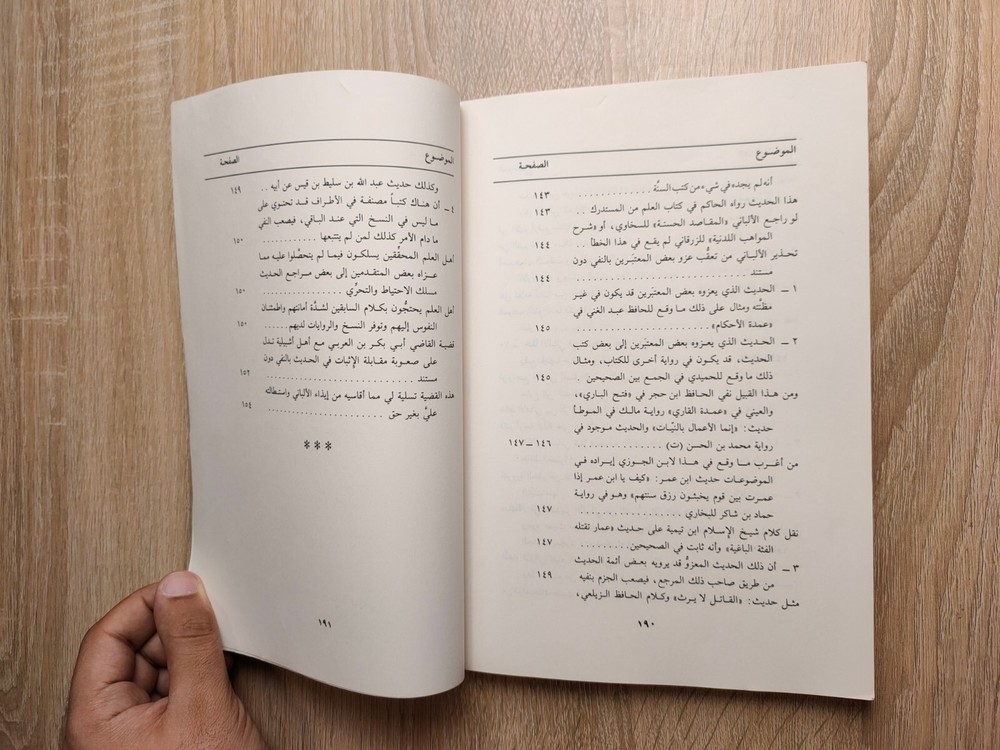 الموضـوع الصفحـة
أنه لم يجده في شيء من كتب السنَّة . . . . . . . . . . . . . ١٤٣
هذا الحديث رواه الحاكم في كتاب العلم من المستدرك . . ١٤٣
لو راجع الألباني «المقاصد الحسنة» للسخاوي، أو «شرح
المواهب اللدنية» للزرقاني لم يقع في هذا الخطأ . . ١٤٤
تحذير الألباني من تعقُّب عزو بعض المعتبَرين بالنفي دون
مستند . . . . . . . . . . . . . . . . . . . . . . . . ١٤٤
١ – الحديث الذي يعزوه بعض المعتبَرين قد يكون في غير
مظنَّته ومثال على ذلك ما وقع للحافظ عبد الغني في
«عمدة الأحكام» . . . . . . . . . . . . . . . . . . . ١٤٥
٢ – الحديث الذي يعزوه بعض المعتبَرين إلى بعض كتب
الحديث، قد يكون في رواية أخرى للكتاب، ومثال
ذلك ما وقع للحميدي في الجمع بين الصحيحين . ١٤٥
ومن هذا القبيل نفي الحافظ ابن حجر في «فتح الباري»،
والعيني في «عمدة القاري» رواية مالك في الموطأ
حديث: «إنما الأعمال بالنيَّات» والحديث موجود في
رواية محمد بن الحسن (ت) . . . . . . . . . . . . ١٤٦ – ١٤٧
من أغرب ما وقع في هذا لابن الجوزي إيراده في
الموضوعات حديث ابن عمر: «كيف يا ابن عمر إذا
عمرت بين قوم يخبئون رزق سنتهم» وهو في رواية
حماد بن شاكر للبخاري . . . . . . . . . . . . . . . . . ١٤٧
نقل كلام شيخ الإسلام ابن تيمية على حديث «عمار تقتله
الفئة الباغية» وأنه ثابت في الصحيحين . . . . . . . . . ١٤٧
٣ – أن ذلك الحديث المعزوُّ قد يرويه بعض أئمة الحديث
من طريق صاحب ذلك المرجع، فيصعب الجزم بنفيه ١٤٩
مثل حديث: «القاتل لا يرث» وكلام الحافظ الزيلعي،
١٩٠
الموضـوع الصفحـة
وكذلك حديث عبد الله بن سليط بن قيس عن أبيه . . ١٤٩
٤ – أن هناك كتباً مصنفة في الأطراف قد تحتوي على
ما ليس في النسخ التي عند الباقي، فيصعب النفي
ما دام الأمر كذلك لمن لم يتتبعها . . . . . . . . . . . . ١٥٠
أهل العلم المحقِّقين يسلكون فيما لم يتحصَّلوا عليه مما
عزاه بعض المتقدمين إلى بعض مراجع الحديث
مسلك الاحتياط والتحرِّي . . . . . . . . . . . . . . . . ١٥٠
أهل العلم يحتجُّون بكلام السابقين لشدَّة أمانتهم واطمئنان
النفوس إليهم وتوفر النسخ والروايات لديهم . . . . . . ١٥٠
قضية القاضي أبي بكر بن العربي مع أهل أشبيلية تدل
على صعوبة مقابلة الإثبات في الحديث بالنفي دون
مستند . . . . . . . . . . . . . . . . . . . . . . . . ١٥٢
هذه القضية تسلية لي مما أقاسيه من إيذاء الألباني واستطالته
عليَّ بغير حق . . . . . . . . . . . . . . . . . . . . . ١٥٤
***
١٩١